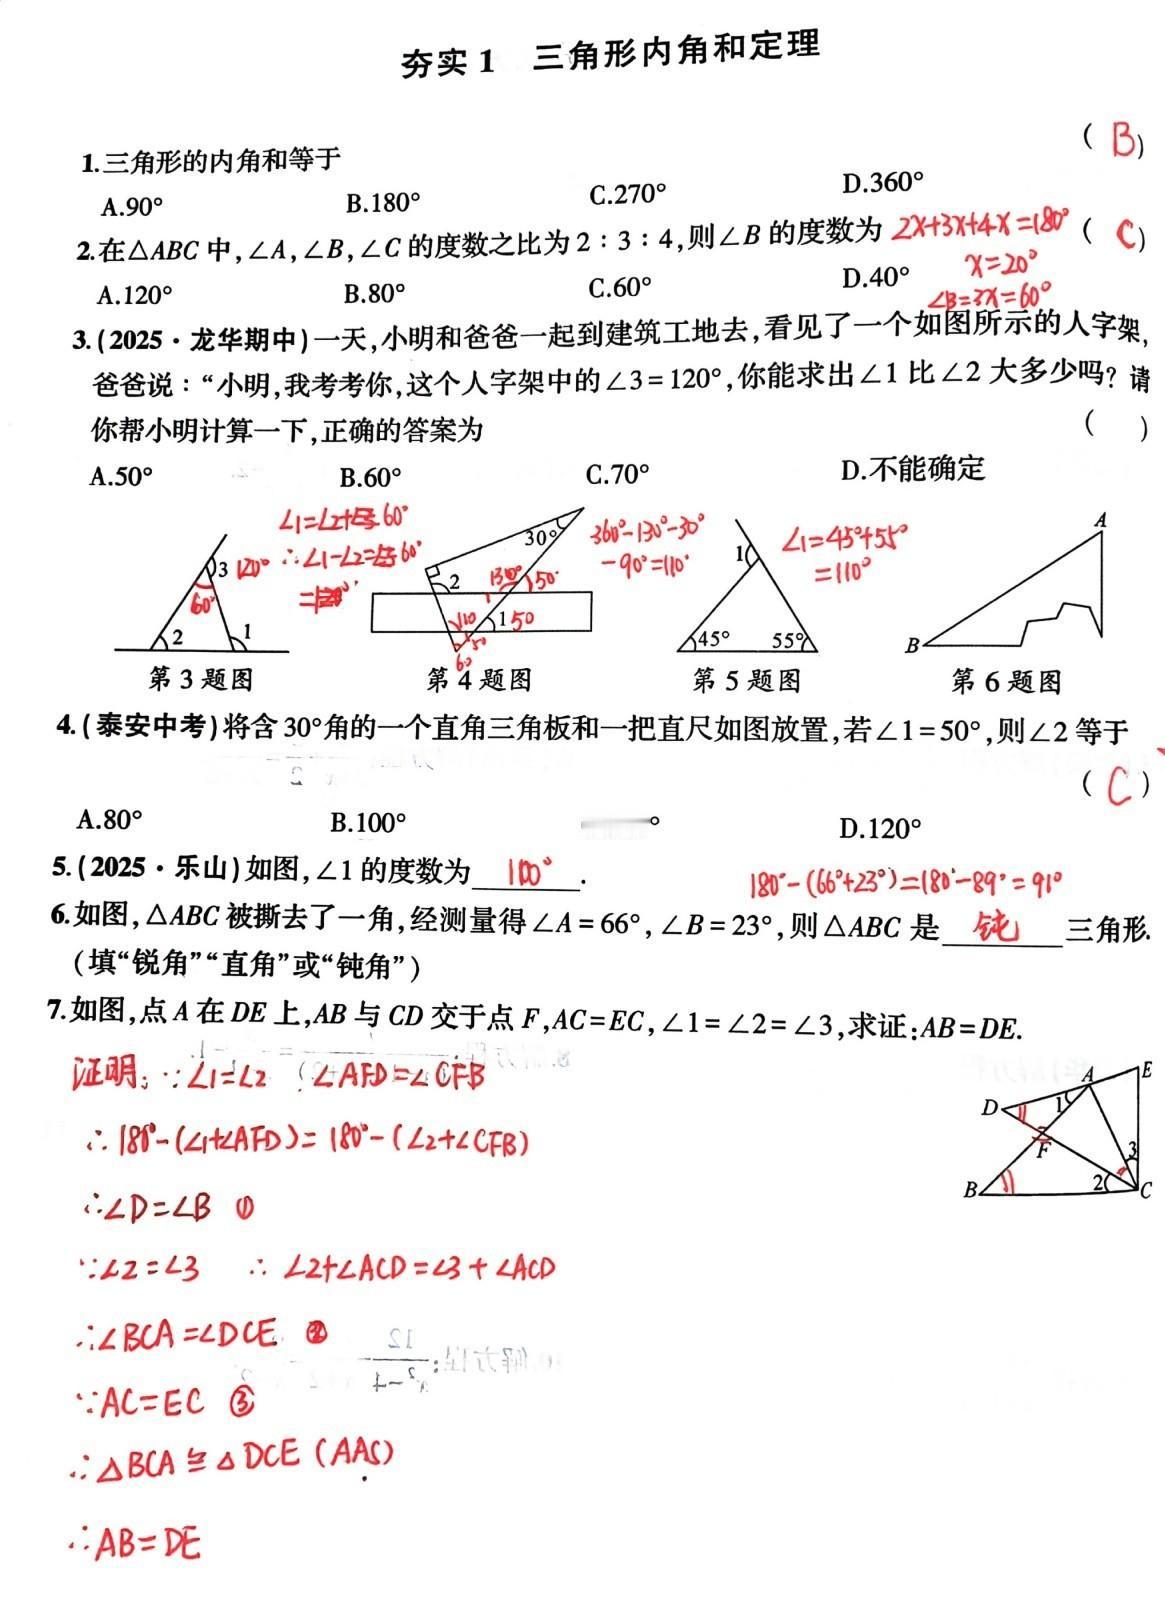 夯实1 三角形内角和定理
1.三角形的内角和等于 ( B )
A.90° B.180° C.270° D.360°
2.在△ABC中,∠A,∠B,∠C的度数之比为2:3:4,则∠B的度数为 2x+3x+4x=180° ( C )
x=20°
A.120° B.80° C.60° D.40°
∠B=3x=60°
3.(2025·龙华期中)一天,小明和爸爸一起到建筑工地去,看见了一个如图所示的人字架,
爸爸说:“小明,我考考你,这个人字架中的∠3=120°,你能求出∠1比∠2大多少吗?请
你帮小明计算一下,正确的答案为 ( )
A.50° B.60° C.70° D.不能确定
∠1=∠2+60°
∴∠1-∠2=60°
3 120°
60°
2 1
第3题图
30°
2 130° 50°
110 1 50
50
60
360°-130°-30°
-90°=110°
第4题图
1
45° 55°
∠1=45°+55°
=110°
第5题图
A
B
第6题图
4.(泰安中考)将含30°角的一个直角三角板和一把直尺如图放置,若∠1=50°,则∠2等于
( C )
A.80° B.100° ° D.120°
5.(2025·乐山)如图,∠1的度数为 100°.
180°-(66°+23°)=180°-89°=91°
6.如图,△ABC被撕去了一角,经测量得∠A=66°,∠B=23°,则△ABC是 钝 三角形.
(填“锐角”“直角”或“钝角”)
7.如图,点A在DE上,AB与CD交于点F,AC=EC,∠1=∠2=∠3,求证:AB=DE.
证明:∵∠1=∠2 ∠AFD=∠CFB
∴180°-(∠1+∠AFD)=180°-(∠2+∠CFB)
∴∠D=∠B ①
∵∠2=∠3 ∴∠2+∠ACD=∠3+∠ACD
∴∠BCA=∠DCE ②
∵AC=EC ③
∴△BCA≌△DCE(AAS)
∴AB=DE
A E
D 1
F
3
B 2 C